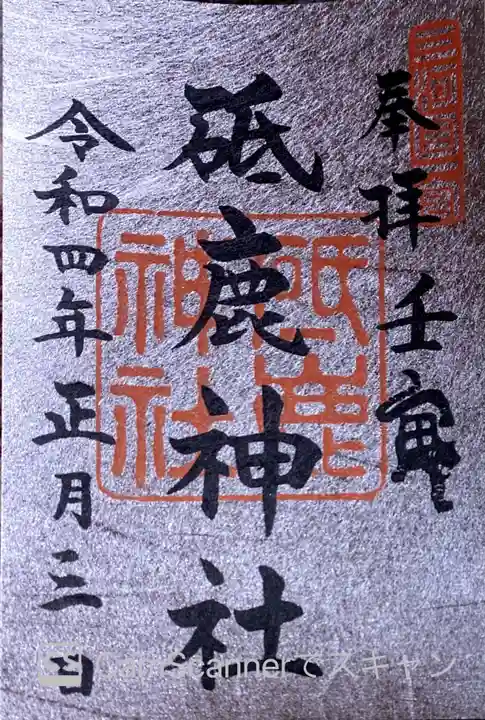 奉拝 壬寅
砥鹿神社
令和四年正月三日
砥鹿
神社
CamScannerでスキャン